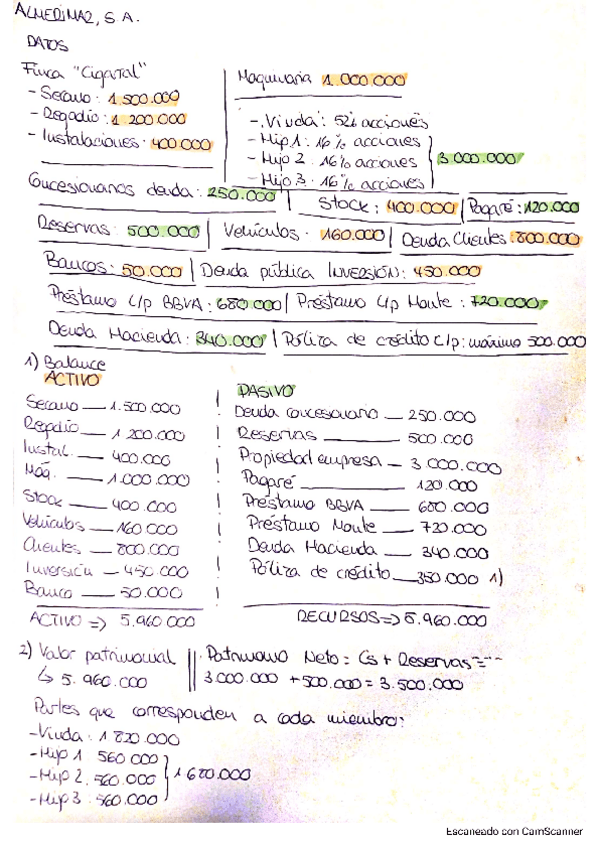 ALMERIMAR, S.A.
DATOS
Finca "Cigarral"
- Secano: 1.500.000
- Regadío: 1.200.000
- Instalaciones: 400.000
Maquinaria 1.000.000
- Viuda: 52% acciones
- Hijo 1: 16% acciones
- Hijo 2: 16% acciones
- Hijo 3: 16% acciones
3.000.000
Concesionarios deuda: 250.000 | Stock: 400.000 | Pagaré: 120.000
Reservas: 500.000 | Vehículos: 160.000 | Deuda Clientes: 800.000
Bancos: 50.000 | Deuda pública INVERSIÓN: 450.000
Préstamo C/p BBVA: 680.000 | Préstamo L/p Monte: 720.000
Deuda Hacienda: 340.000 | Póliza de crédito C/p: máximo 500.000
1) Balance
ACTIVO
Secano — 1.500.000
Regadío — 1.200.000
Instal. — 400.000
Maq. — 1.000.000
Stock — 400.000
Vehículos — 160.000
Clientes — 800.000
Inversión — 450.000
Banco — 50.000
ACTIVO => 5.960.000
PASIVO
Deuda concesionario — 250.000
Reservas — 500.000
Propiedad empresa — 3.000.000
Pagaré — 120.000
Préstamo BBVA — 680.000
Préstamo Monte — 720.000
Deuda Hacienda — 340.000
Póliza de crédito — 350.000 1)
RECURSOS => 5.960.000
2) Valor patrimonial
↳ 5.960.000
Patrimonio Neto = Cs + Reservas =
3.000.000 + 500.000 = 3.500.000
Partes que corresponden a cada miembro:
- Viuda: 1.820.000
- Hijo 1: 560.000
- Hijo 2: 560.000
- Hijo 3: 560.000
1.680.000
Escaneado con CamScanner